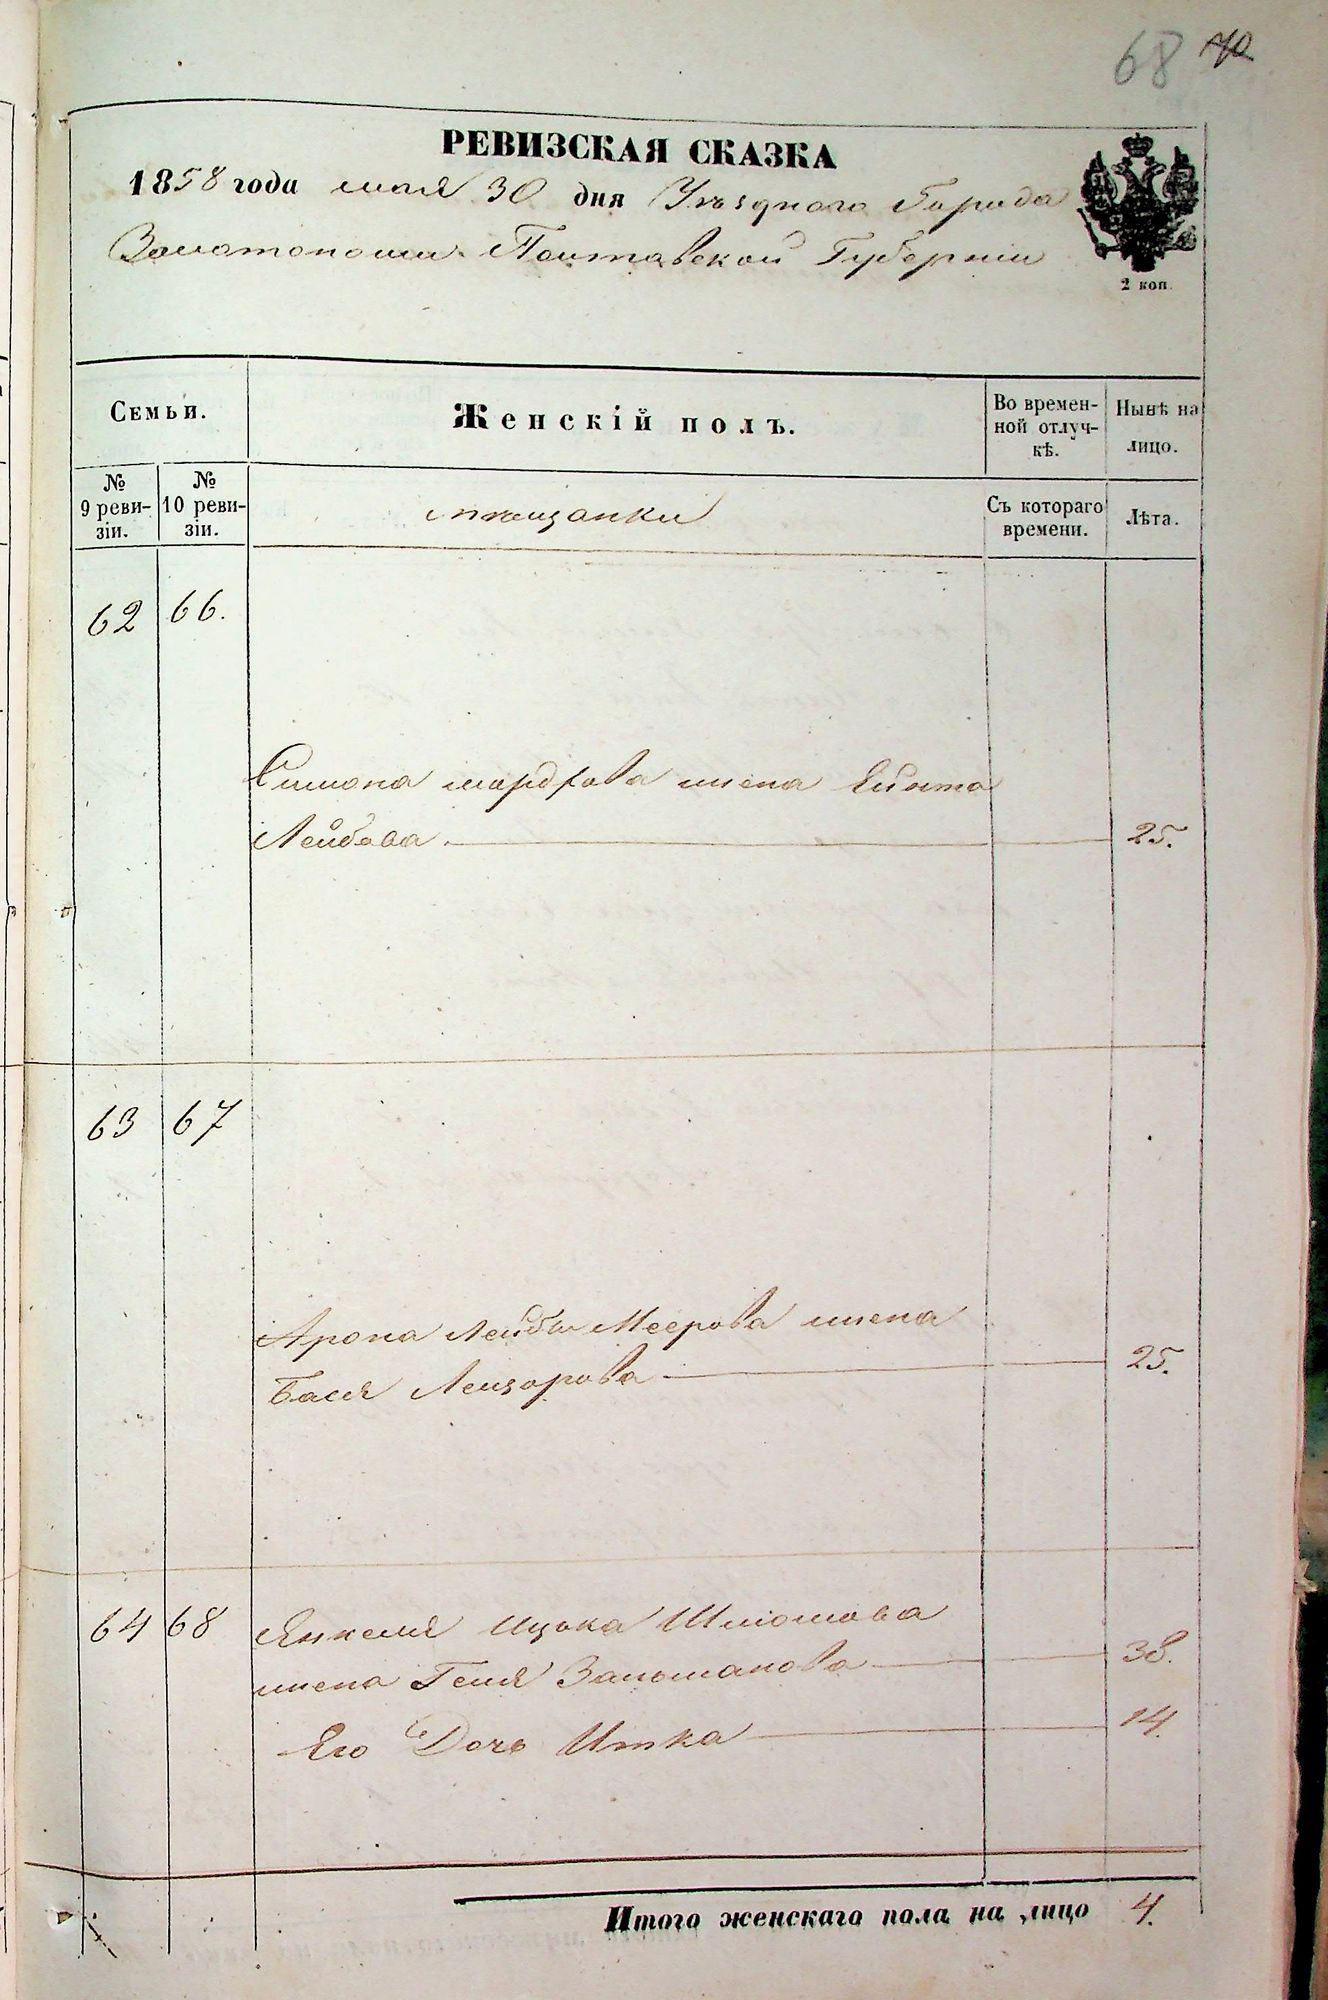 68 70
РЕВИЗСКАЯ СКАЗКА
1858 года мая 30 дня Уѣзднаго Города
Золотоноши Полтавской Губерніи
2 коп.
Семьи.
Женскій полъ.
Во времен-
ной отлуч-
кѣ.
Нынѣ на
лицо.
№
9 реви-
зіи.
№
10 реви-
зіи.
мѣщанки
Съ котораго
времени.
Лѣта.
62 66.
Симона жена
Лейбова 25.
63 67
Арона Лейбы Меерова жена
Бася Лейзорова 25.
64 68 Янкеля Ицька Шліомова
жена Геня Зальманова 38.
Его Дочь Итка 14.
Итого женскаго пола на лицо 4.